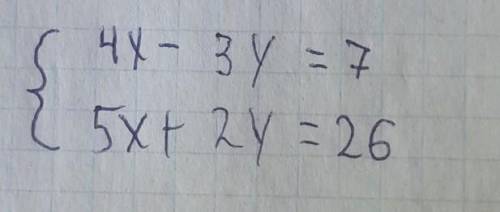 4x - 3y = 7
5x + 2y = 26